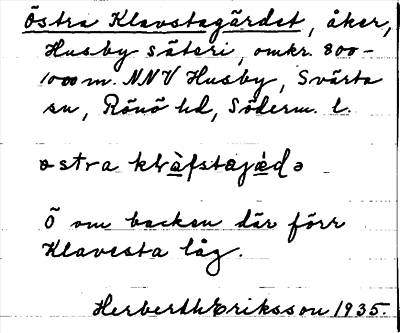 Östra Klavstagärdet, åker,
Husby säteri, omkr. 800-
1000 m. NNV Husby, Svärta
sn, Rönö hd, Söderm. l.
ostra klàfstajàdə
Ö om backen där förr
Klavesta låg.
Herberth Eriksson 1935.